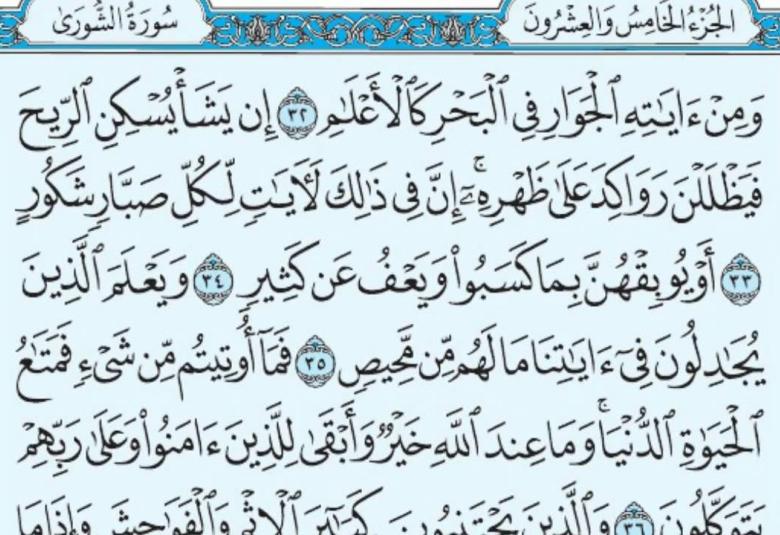 الجُزْءُ الخَامِسُ وَالعِشْرُونَ
سُورَةُ الشُّورَىٰ
وَمِنْ ءَايَٰتِهِ ٱلْجَوَارِ فِى ٱلْبَحْرِ كَٱلْأَعْلَٰمِ ٣٢ إِن يَشَأْ يُسْكِنِ ٱلرِّيحَ
فَيَظْلَلْنَ رَوَاكِدَ عَلَىٰ ظَهْرِهِۦٓ ۚ إِنَّ فِى ذَٰلِكَ لَءَايَٰتٍ لِّكُلِّ صَبَّارٍ شَكُورٍ
٣٣ أَوْ يُوبِقْهُنَّ بِمَا كَسَبُوا۟ وَيَعْفُ عَن كَثِيرٍ ٣٤ وَيَعْلَمَ ٱلَّذِينَ
يُجَٰدِلُونَ فِىٓ ءَايَٰتِنَا مَا لَهُم مِّن مَّحِيصٍ ٣٥ فَمَآ أُوتِيتُم مِّن شَىْءٍ فَمَتَٰعُ
ٱلْحَيَوٰةِ ٱلدُّنْيَا ۚ وَمَا عِندَ ٱللَّهِ خَيْرٌ وَأَبْقَىٰ لِلَّذِينَ ءَامَنُوا۟ وَعَلَىٰ رَبِّهِمْ
يَتَوَكَّلُونَ ٣٦ وَٱلَّذِينَ يَجْتَنِبُونَ كَبَٰٓئِرَ ٱلْإِثْمِ وَٱلْفَوَٰحِشَ وَإِذَا مَا